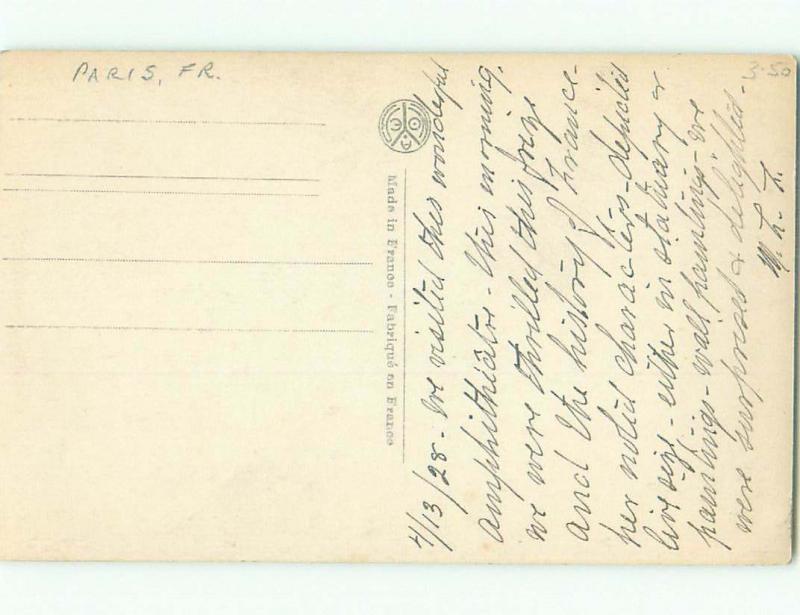 PARIS, FR.
3.50
Made in France - Fabriqué en France
4/13/28 - we visited this wonderful
amphitheatre - this morning.
we were thrilled this frieze
and the history of France -
her noted characters - depicted
live size - either in statuary or
paintings - wall paintings - we
were surprised & delighted -
M. L. L.